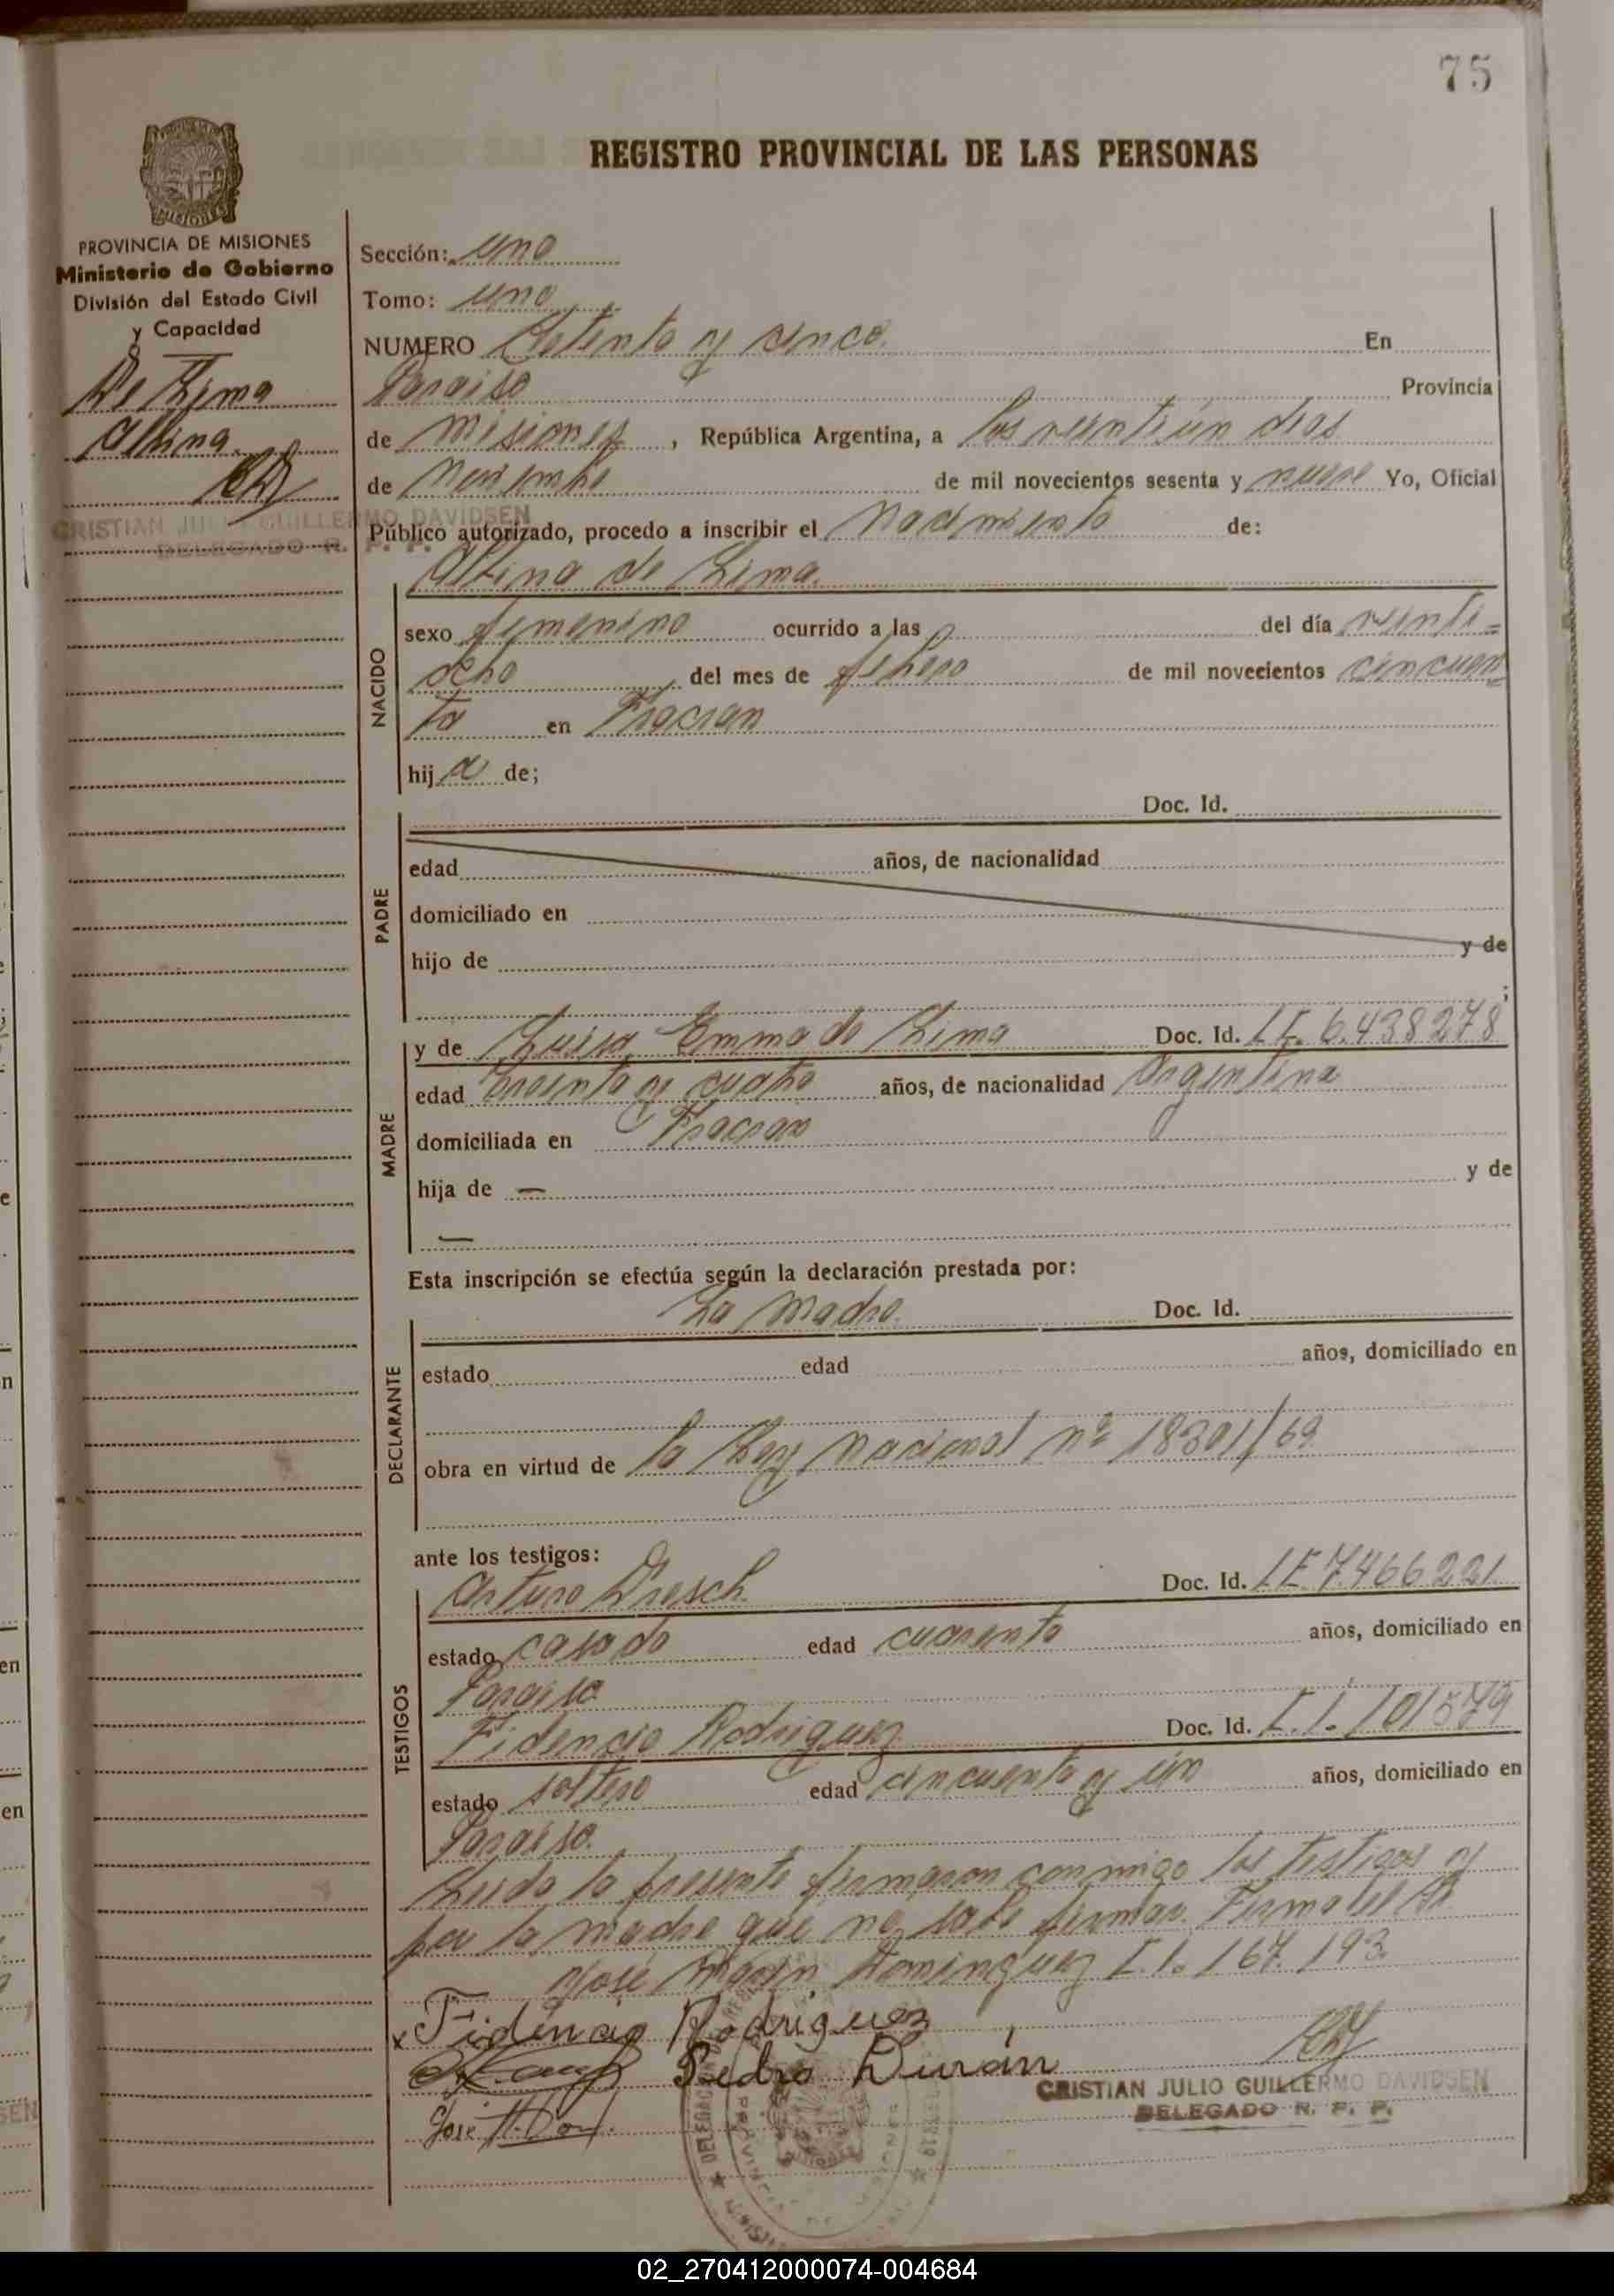 75
REGISTRO PROVINCIAL DE LAS PERSONAS
MISIONES
PROVINCIA DE MISIONES
Ministerio de Gobierno
División del Estado Civil
y Capacidad
De Lima
Albina
CRISTIAN JULIO GUILLERMO DAVIDSEN
DELEGADO R. P. P.
Sección: uno
Tomo: uno
NUMERO Setenta y cinco. En
Paraiso Provincia
de Misiones, República Argentina, a los veintiún dias
de Noviembre de mil novecientos sesenta y nueve Yo, Oficial
Público autorizado, procedo a inscribir el Nacimiento de:
Albina de Lima.
NACIDO
sexo femenino ocurrido a las del día veinti=
ocho del mes de febrero de mil novecientos cincuen=
ta en Fracran
hija de;
PADRE
Doc. Id.
edad años, de nacionalidad
domiciliado en
hijo de y de
;
MADRE
y de Luisa Emma de Lima Doc. Id. L.E. 6.438278
edad treinta y cuatro años, de nacionalidad Argentina
domiciliada en Fracran
hija de — y de
—
Esta inscripción se efectúa según la declaración prestada por:
DECLARANTE
La Madre. Doc. Id.
estado edad años, domiciliado en
obra en virtud de la Ley Nacional nº 18301/69
ante los testigos:
TESTIGOS
Arturo Dresch Doc. Id. LE 7.466221
estado casado edad cuarenta años, domiciliado en
Paraiso
Fidencio Rodriguez Doc. Id. I.1. 101579
estado soltero edad cincuenta y ún años, domiciliado en
Paraiso.
Leida la presente firmaron conmigo los testigos y
por la madre que no sabe firmar. Firma el Sr.
José Dominguez I.1. 167.193.
x Fidencio Rodriguez
Pedro Durán
CRISTIAN JULIO GUILLERMO DAVIDSEN
DELEGADO R. P. P.
02_270412000074-004684